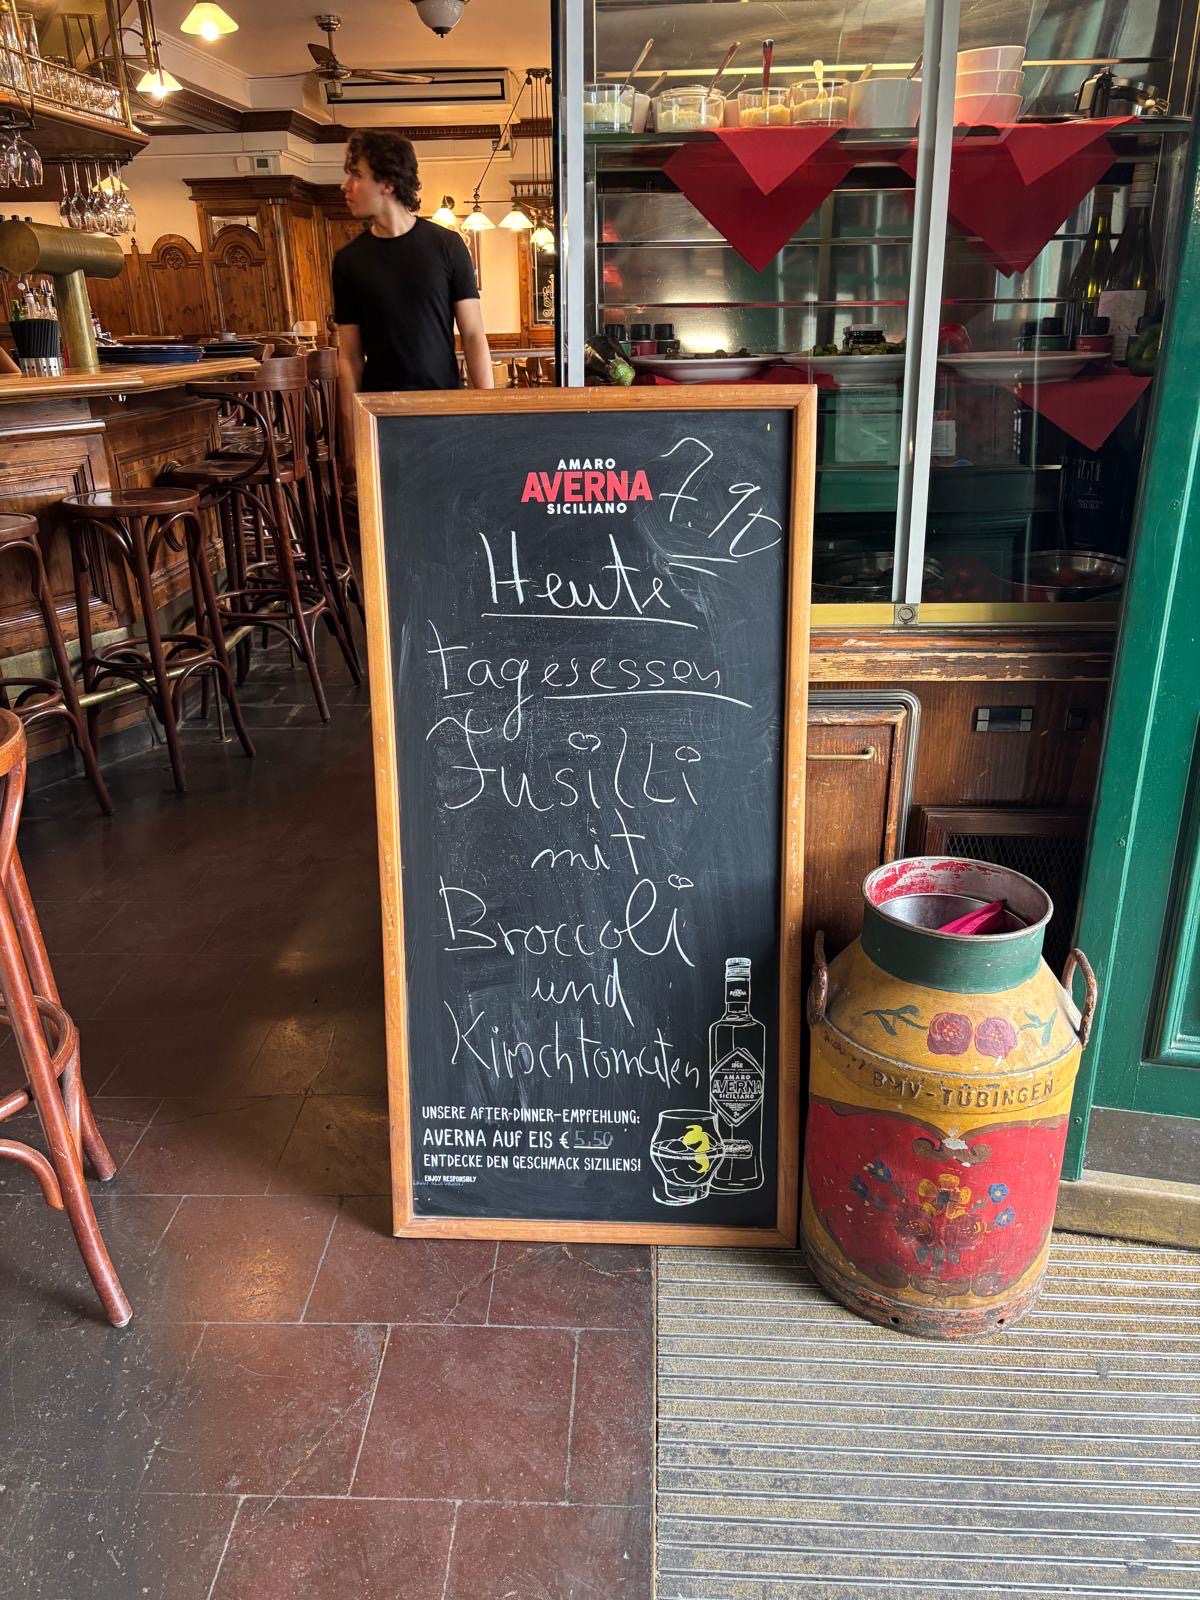 AMARO
AVERNA
SICILIANO
7,90
Heute
Tagesessen
Fusilli
mit
Broccoli
und
Kirschtomaten
UNSERE AFTER-DINNER-EMPFEHLUNG:
AVERNA AUF EIS € 5,50
ENTDECKE DEN GESCHMACK SIZILIENS!
ENJOY RESPONSIBLY
AVERNA
AMARO
AVERNA
SICILIANO
BMV-TÜBINGEN